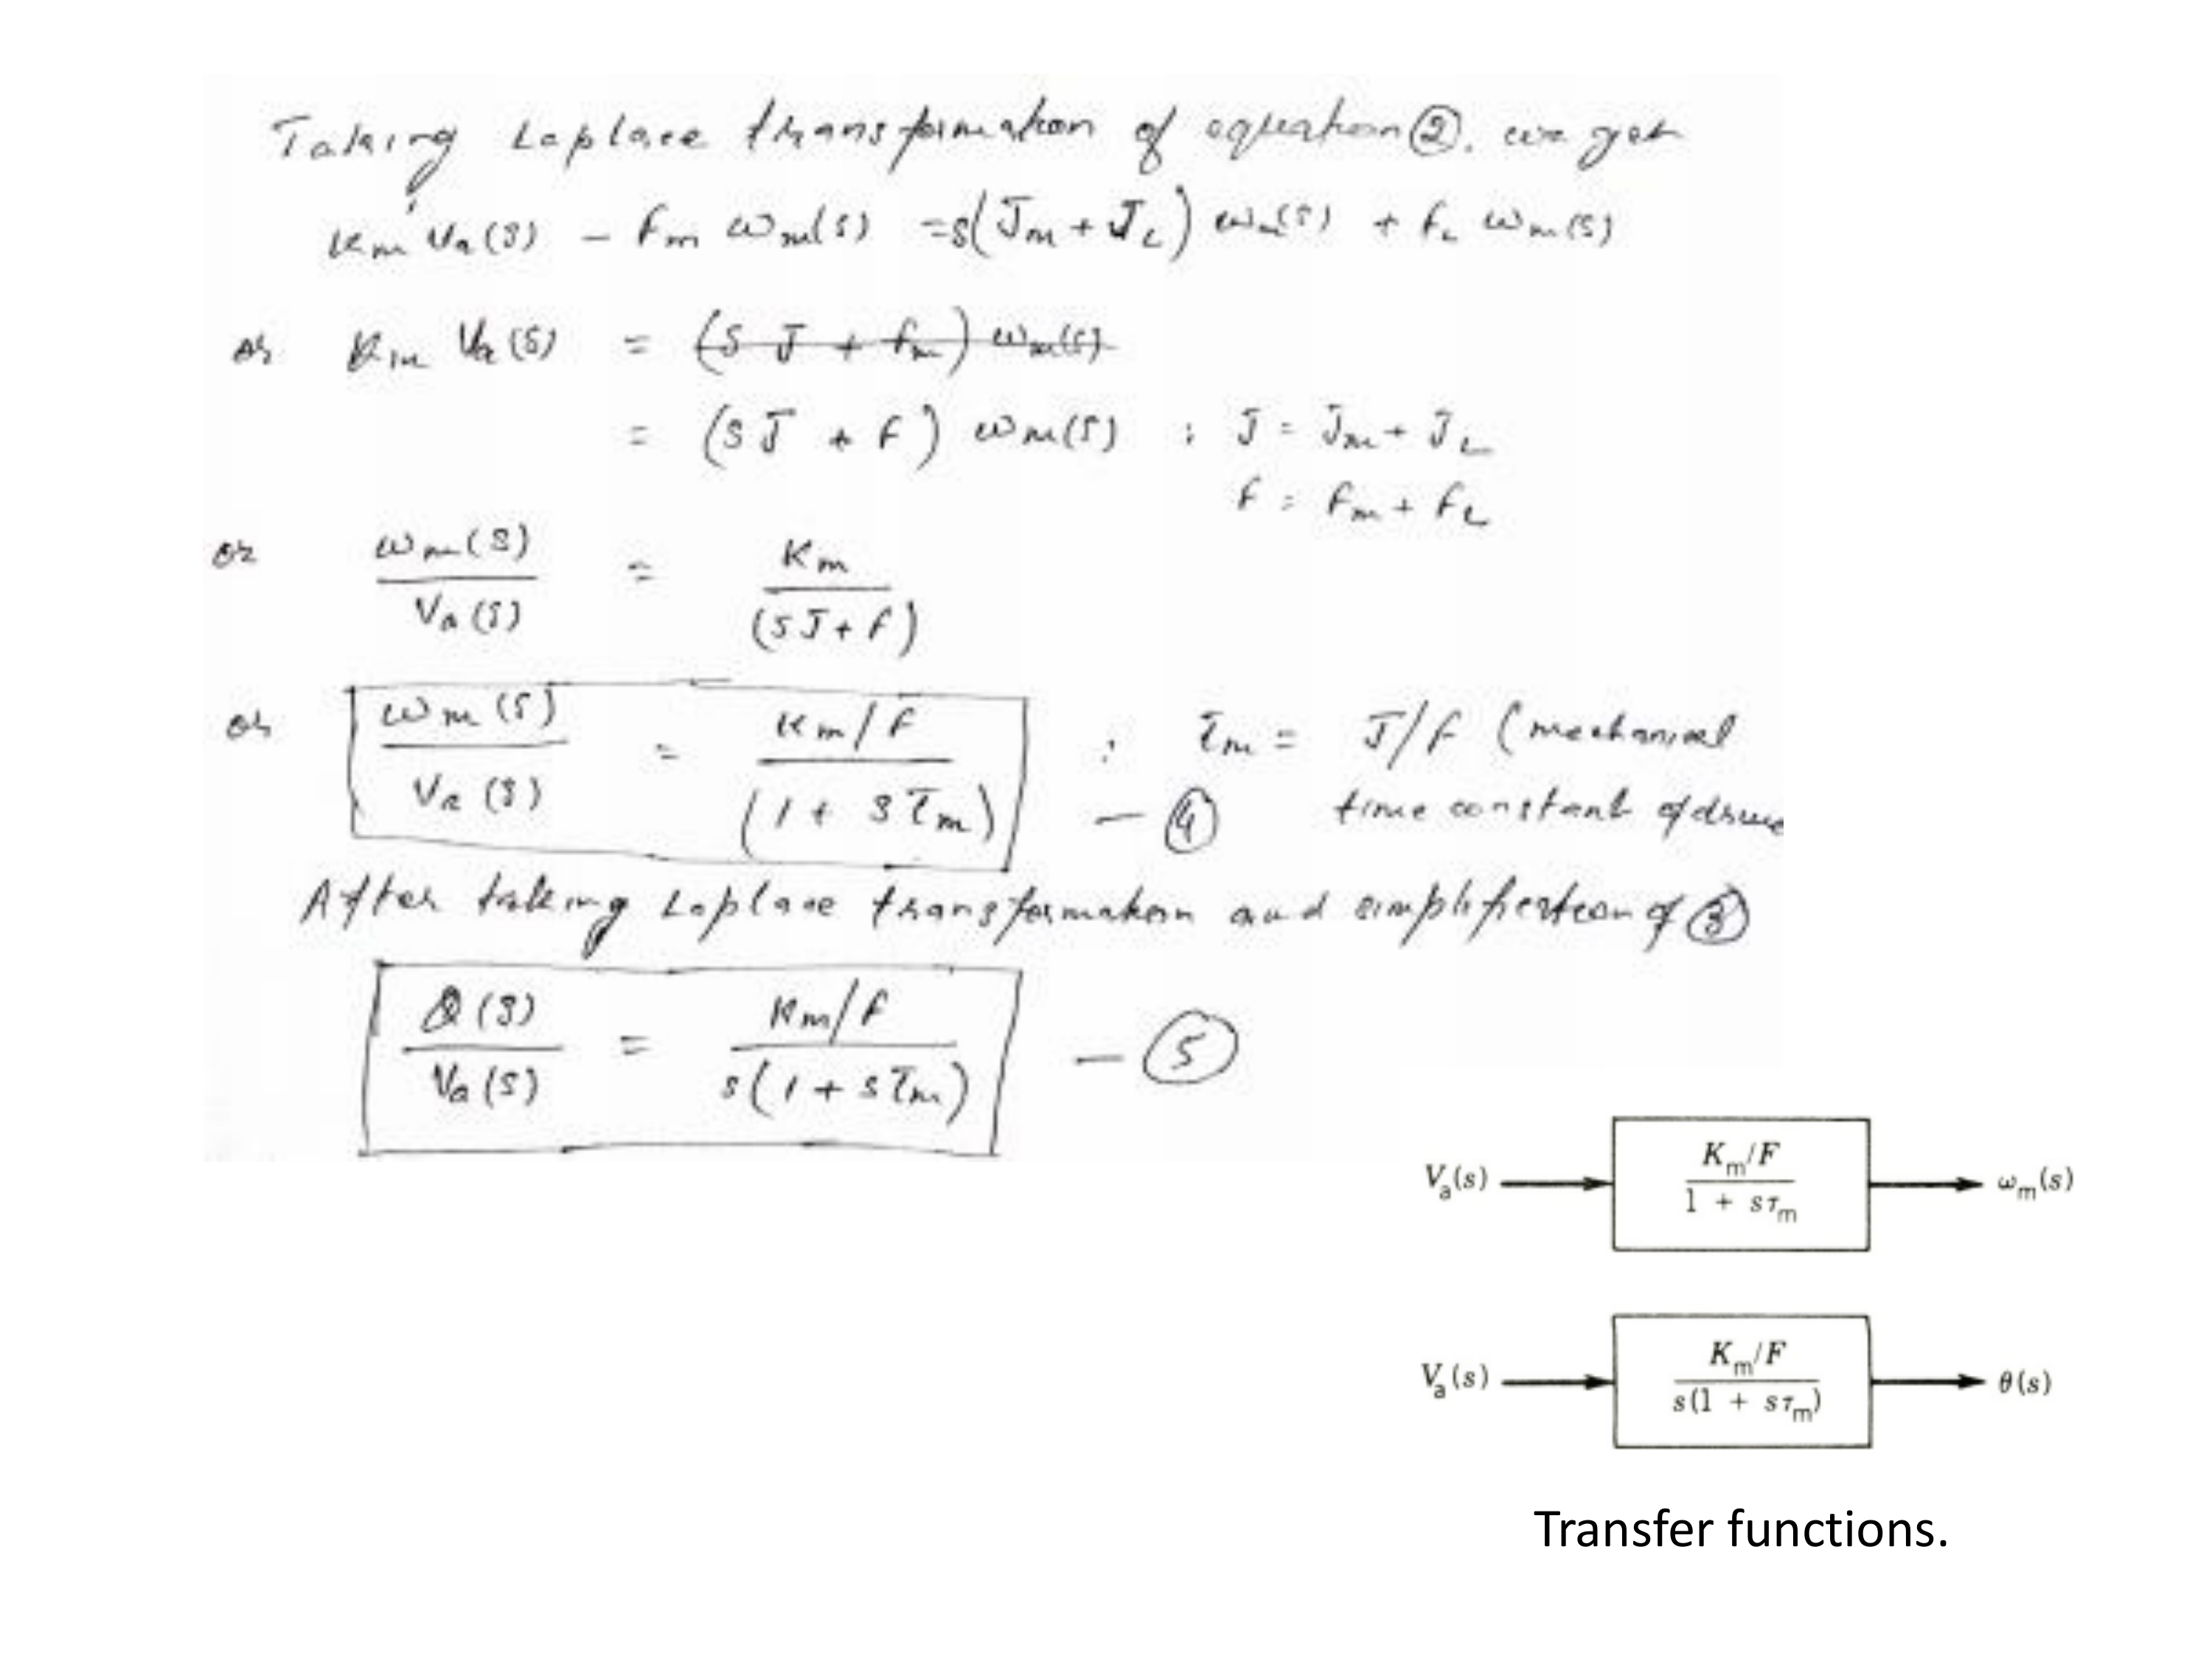 Taking Laplace transformation of equation ②, we get
Km Va(s) - Fm ωm(s) = s(Jm + JL) ωm(s) + FL ωm(s)
or Km Va(s) = (s J + Fm) ωm(s)
= (s J + F) ωm(s) : J = Jm + JL
F = Fm + FL
or ωm(s) / Va(s) = Km / (sJ + F)
or ωm(s) / Va(s) = Km/F / (1 + sτm) : τm = J/F (mechanical
— ④ time constant of drive
After taking Laplace transformation and simplification of ③
θ(s) / Va(s) = Km/F / s(1 + sτm) — ⑤
Va(s) Km/F / 1 + sτm ωm(s)
Va(s) Km/F / s(1 + sτm) θ(s)
Transfer functions.